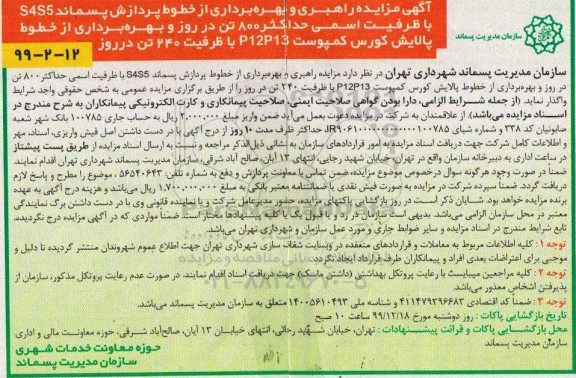 آگهی مزایده راهبری و بهره‌برداری از خطوط پردازش پسماند S4S5
با ظرفیت اسمی حداکثر ۸۰۰ تن در روز و بهره‌برداری از خطوط
پالایش کورس کمپوست P12P13 با ظرفیت ۲۴۰ تن در روز
۹۹-۲-۱۲
سازمان مدیریت پسماند
سازمان مدیریت پسماند شهرداری تهران در نظر دارد مزایده راهبری و بهره‌برداری از خطوط پردازش پسماند S4S5 با ظرفیت اسمی حداکثر ۸۰۰ تن
در روز و بهره‌برداری از خطوط پالایش کورس کمپوست P12P13 با ظرفیت ۲۴۰ تن در روز را از طریق برگزاری مزایده عمومی به شخص حقوقی واجد شرایط
واگذار نماید. (از جمله شرایط الزامی، دارا بودن گواهی صلاحیت ایمنی، صلاحیت پیمانکاری و کارت الکترونیکی پیمانکاران به شرح مندرج در
اسناد می‌باشد). از علاقمندان به شرکت در مزایده دعوت بعمل می‌آید ضمن واریز مبلغ ۲.۰۰۰.۰۰۰ ریال به حساب جاری ۱۰۰۷۸۵ بانک شهر شعبه
صابونیان کد ۳۳۸ و شماره شبای حداکثر ظرف مدت ۱۰ روز از درج آگهی با در دست داشتن اصل فیش واریزی، اسناد، مهر
و اطلاعات کامل شرکت جهت دریافت اسناد مزایده به امور قراردادهای سازمان به نشانی ذیل‌الذکر مراجعه و نسبت به ارسال اسناد مزایده از طریق پست پیشتاز
در ساعت اداری به دبیرخانه سازمان واقع در تهران، خیابان شهید رجایی، انتهای ۱۳ آبان، صالح آباد شرقی، سازمان مدیریت پسماند شهرداری تهران اقدام نمایند.
ضمناً در صورت وجود هرگونه سوال درخصوص موضوع مزایده، ضمن تماس با معاونت پردازش و دفع به شماره تلفن: ۵۶۵۴۰۶۴۳ ، موضوع را مطرح و پاسخ لازم
دریافت گردد. ضمناً سپرده شرکت در مزایده به صورت فیش نقدی یا ضمانتنامه معتبر بانکی به مبلغ ۱.۷۰۰.۰۰۰.۰۰۰ ریال می‌باشد و هزینه درج آگهی به عهده
برنده مزایده خواهد بود. شایان ذکر است در روز بازگشایی پاکتهای مزایده، حضور مدیرعامل شرکت و یا نماینده قانونی وی با در دست داشتن برگ نمایندگی
معتبر در محل سازمان الزامی می‌باشد. بدیهی است سازمان در رد و یا قبول یک یا کلیه پیشنهادها مختار است. ضمناً مواردی که در آگهی مزایده درج نگردیده،
تابع شرایط مندرج در اسناد مزایده و سایر ضوابط جاری و مورد عمل سازمان و شهرداری تهران می‌باشد.
توجه ۱: کلیه اطلاعات مربوط به معاملات و قراردادهای منعقده در وبسایت شفاف سازی شهرداری تهران جهت اطلاع عموم شهروندان منتشر گردیده تا دلیل و
موجبی برای اعتراضات بعدی افراد و پیمانکاران طرف قرارداد ایجاد نگردد.
توجه ۲: کلیه مراجعین میبایست با رعایت پروتکل بهداشتی (داشتن ماسک) جهت دریافت اسناد اقدام نمایند. در صورت عدم رعایت پروتکل مذکور، سازمان از
پذیرفتن اشخاص معذور می‌باشد.
توجه ۳: ضمناً کد اقتصادی ۴۱۱۴۷۹۳۹۶۶۸۳ و شناسه ملی ۱۴۰۰۵۶۱۰۴۹۳ متعلق به سازمان مدیریت پسماند می‌باشد.
تاریخ بازگشایی پاکات: روز دوشنبه مورخ ۹۹/۱۲/۱۸ ساعت ۱۰ صبح
محل بازگشایی پاکات و قرائت پیشنهادات: تهران، خیابان شهید رجائی، انتهای خیابان ۱۳ آبان، صالح‌آباد شرقی، حوزه معاونت مالی و اداری
سازمان مدیریت پسماند
حوزه معاونت خدمات شهری
سازمان مدیریت پسماند